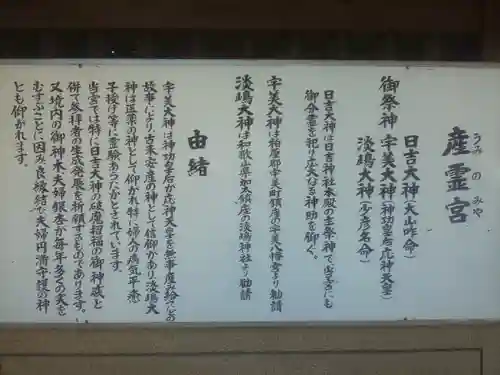 産霊宮
うみのみや
御祭神
日吉大神(大山咋命)
宇美大神(神功皇后 応神天皇)
淡嶋大神(少彦名命)
日吉大神は日吉神社本殿の主祭神で、当宮にも
御分霊を祀り広大なる神助を仰ぐ。
宇美大神は粕屋郡宇美町鎮座の宇美八幡宮より勧請
淡嶋大神は和歌山県加太鎮座の淡嶋神社より勧請
由緒
宇美大神は神功皇后が応神天皇を無事ご産み給へるの
故事により古来安産の神として信仰があり淡嶋大
神は医薬の神として仰がれ特に婦人の病気平癒
子授け等に霊験あらたかとされています。
当宮では特に日吉大神の破魔招福の御神威と
併せて参拝者の生成発展を祈願するものであります。
又境内の御神木夫婦銀杏が毎年多くの実を
むすぶことに因み良縁結び夫婦円満守護の神
とも仰がれます。